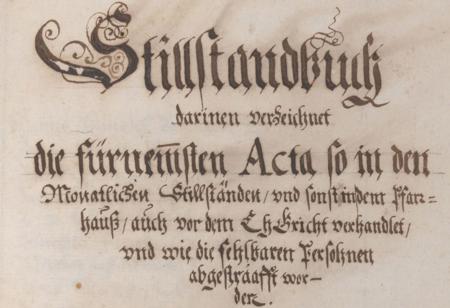 Stillstandbuch
darinen verzeichnet
die fürnem̅sten Acta so in den
Monatlichen Stillständen / und sonst in dem Pfar=
hauß / auch vor dem EhGricht verhandlet /
und wie die fehlbaren Persohnen
abgestraafft wor-
den.